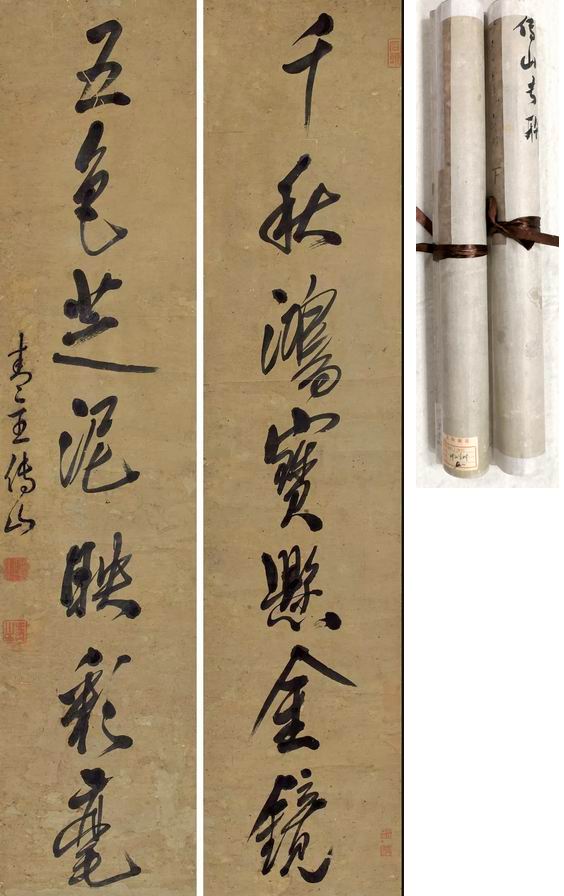 千秋鴻寶懸金鏡
五色芝泥映彩毫
青主傅山
傅山青主